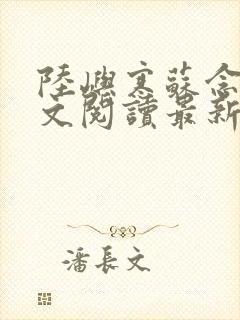 陸嶼寒蘇念
文閱讀最新
潘長文